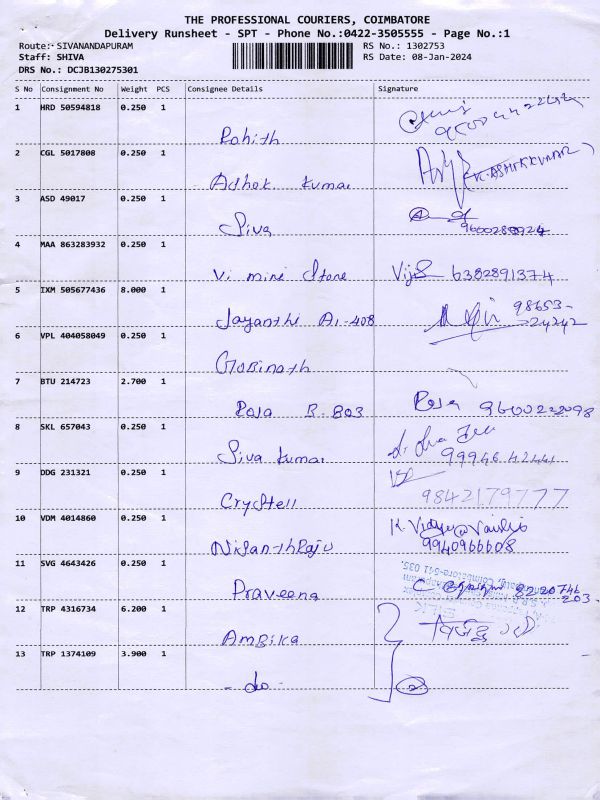 THE PROFESSIONAL COURIERS, COIMBATORE
Delivery Runsheet - SPT - Phone No.:0422-3505555 - Page No.:1
Route: SIVANANDAPURAM
RS No.: 1302753
Staff: SHIVA
RS Date: 08-Jan-2024
DRS No.: DCJB130275301
S No Consignment No Weight PCS Consignee Details Signature
1 HRD 50594818 0.250 1
Rohith
2 CGL 5017808 0.250 1
Ashok Kumar (K. ASHOKKUMAR)
3 ASD 49017 0.250 1
Siva 9600280924
4 MAA 863283932 0.250 1
Vi mini Store Vijis 6382891374
5 IXM 505677436 8.000 1
Jayanthi A1-408 98653-
24242
6 VPL 404058049 0.250 1
Gobinath
7 BTU 214723 2.700 1
Rosa B 803 Rosa 9600222098
8 SKL 657043 0.250 1
Siva Kumar 99946 42441
9 DDG 231321 0.250 1
Crystell 9842179777
10 VDM 4014860 0.250 1
Nisanth Raju 9940966608
11 SVG 4643426 0.250 1
Praveena 8220746
203
12 TRP 4316734 6.200 1
Ambika
13 TRP 1374109 3.900 1
- do -